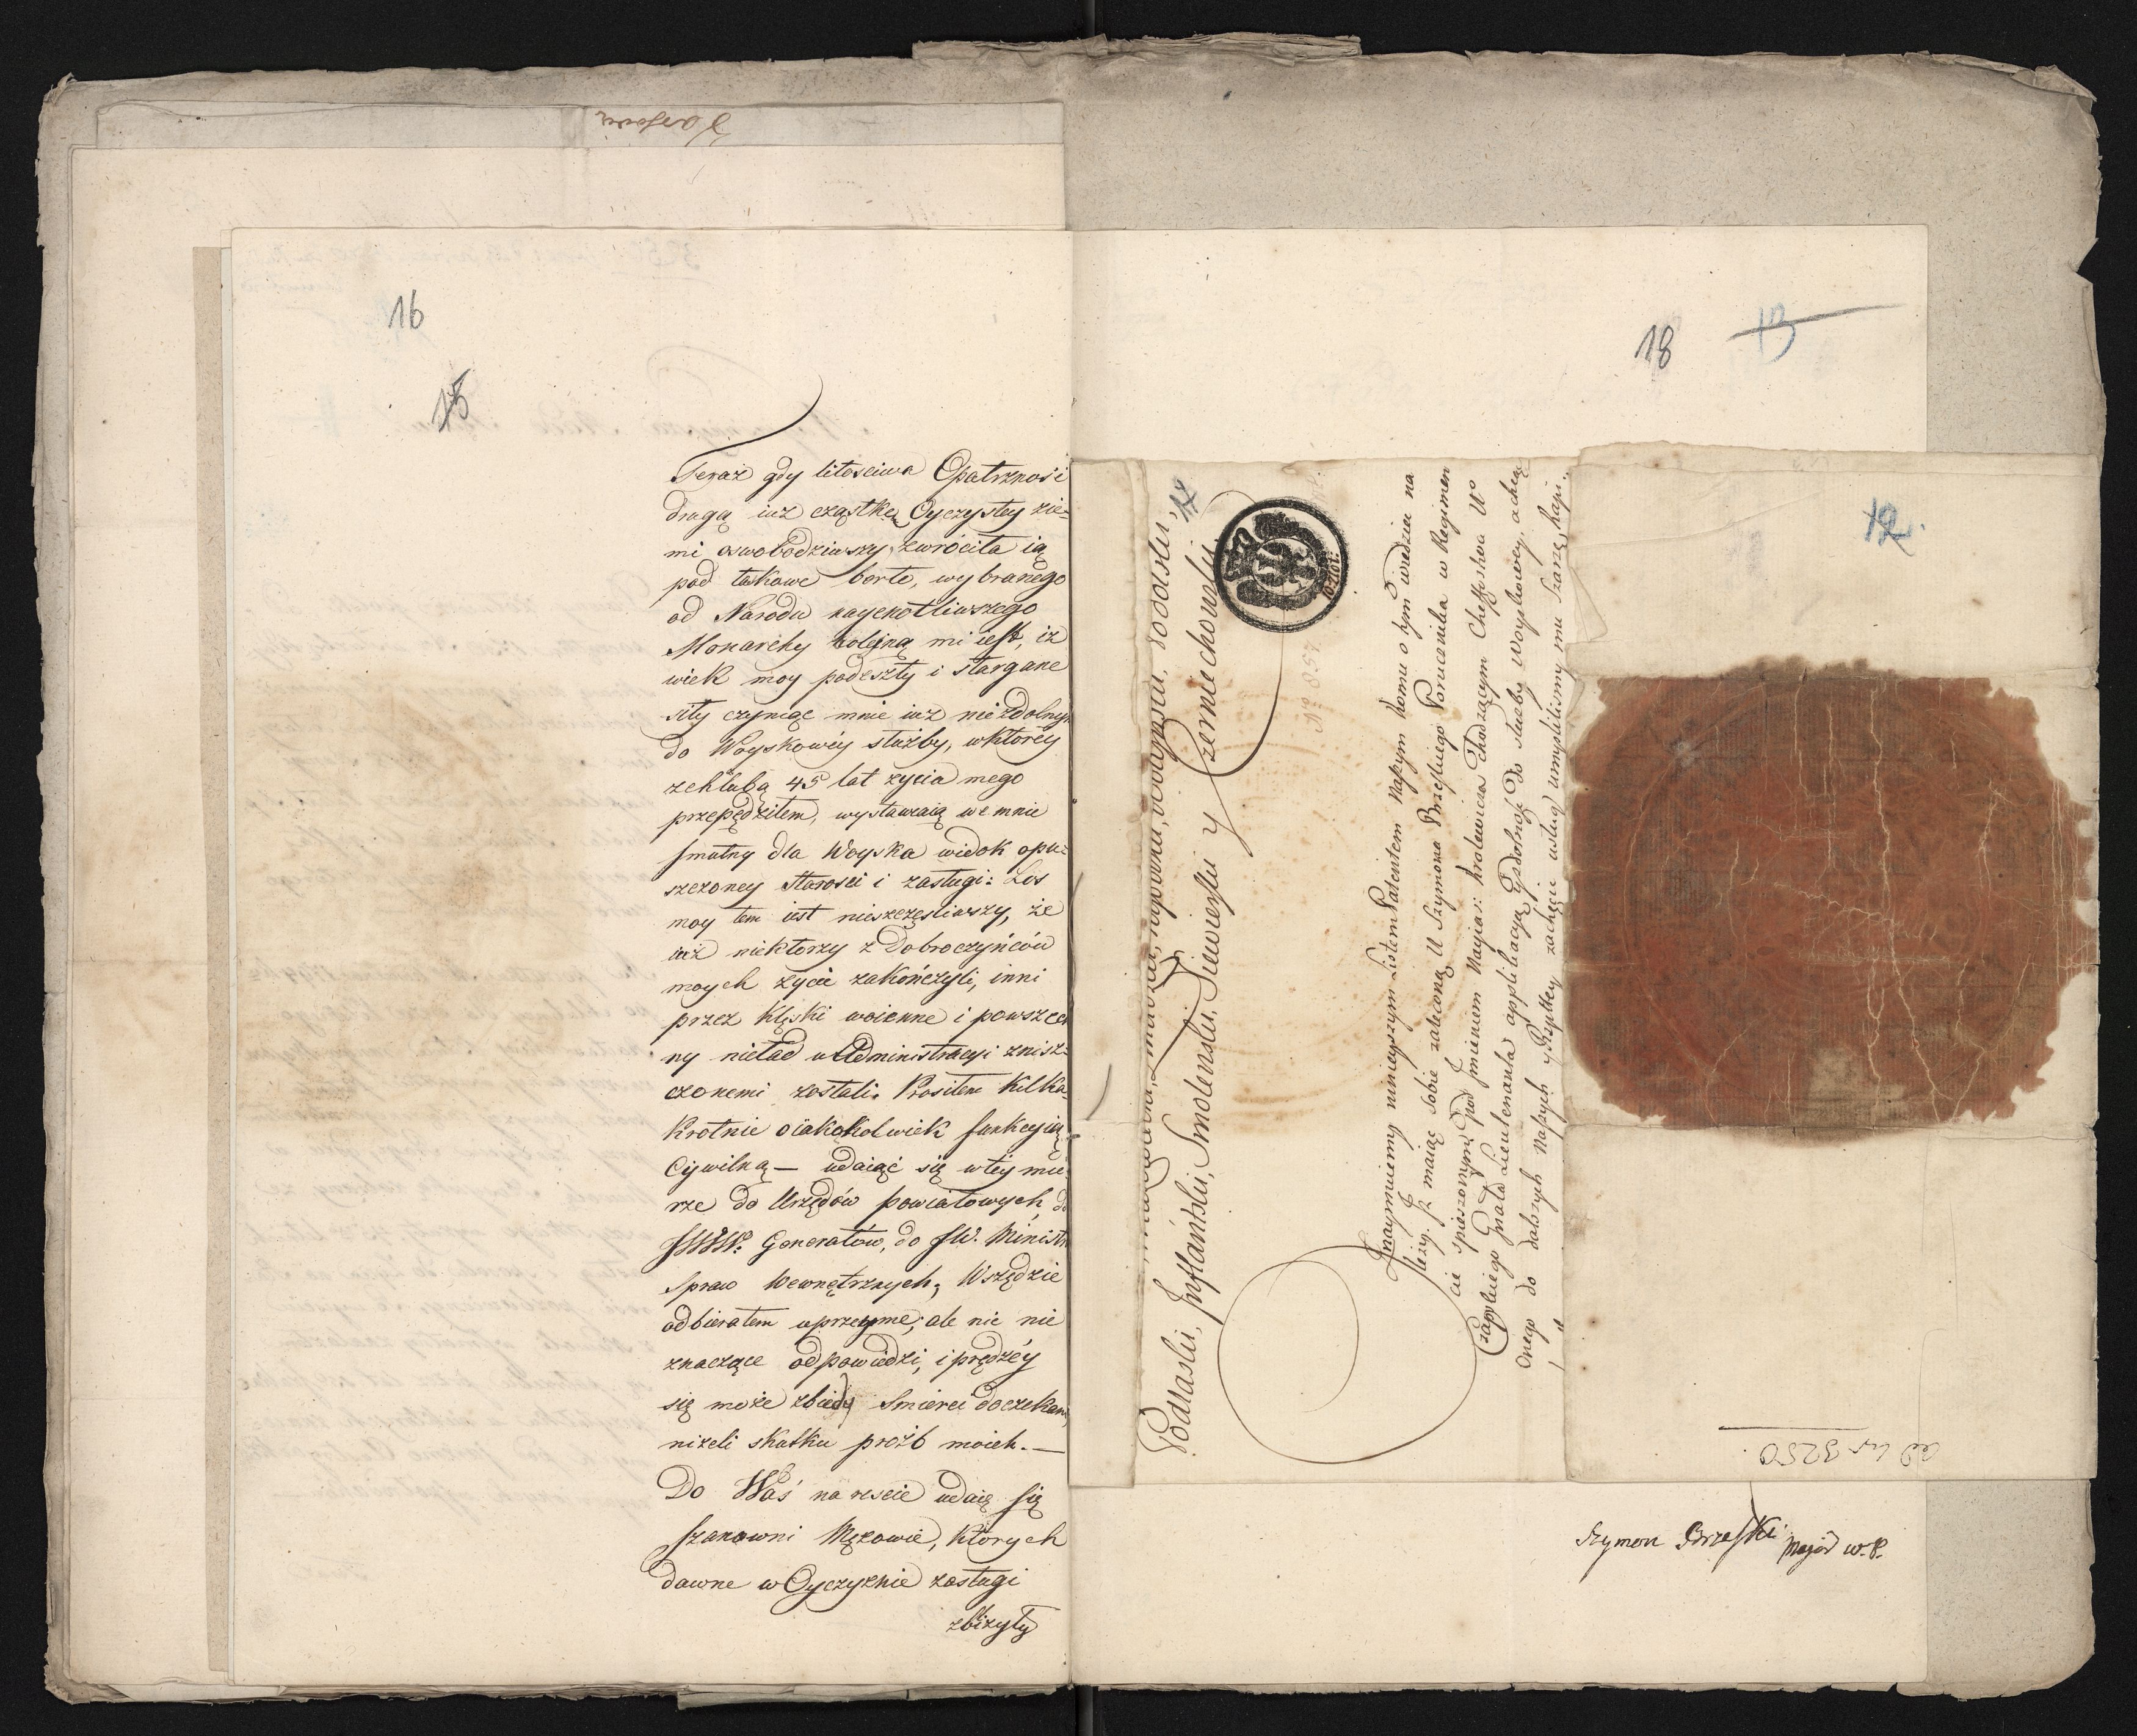 16
Teraz gdy litosciwa Opatrznosć
drugą iuz cząstkę Oyczystey zie=
mi oswobodziwszy, zwrócita ią
pod łaskawe berło, wybranego
od Narodu naycnotliwszego
Monarchy bolesną mi iest, iz
wiek moy podeszły i stargane
siły czyniąc mnie iuz niezdolnym
do Woyskowéy służby, wktoréy
zchlubą 45 lat zycia mego
przepędziłem, wystawiaią we mnie
smutny dla Woyska widok opu=
szczoney starosci i zasługi: Los
moy tem iest nieszczęsliwszy, że
iuż niektorzy z Dobroczyńców
moych życie zakończyli, inni
przez klęski woienne i powszech
ny nieład w Administracyi znisz=
czonemi zostali. Prosiłem kilka=
krotnie oiakokolwiek funkcyią
Cywilną — udaiąć się wtéy mie
rze do Urzędów powiatowych, do
JWWW. Generałów, do JW. Ministra
Spraw Wewnętrznych, Wszędzie
odbierałem uprzeyme, ale nic nie
znaczące odpowiedzi, i prędzéy
się może zbiedy smierci doczekam,
niżeli skutku proźb moich. —
Do Was na rescie udaię się
szanowni Mężowie, których
dawne w Oyczyznie zasługi
zbliżyły
18
13
14
Podlaski, Inflantski, Smolenski, Siewierski y Czerniechowski.
10 Złot:
Oznaymuiemy ninieyszym Listem Patentem Naszym komu o tym wiedziec na
leży. Iż maiąc sobie zaleconą U Szymona Brzeskiego Porucznika w Regimen
cie pieszonym pod Imieniem Nayia: krolewicza chodzącym Cheffostwa Uo
Czapskiego Gnała Lieutenanta applikacyą, zdolność do słuzby Woyskowey, a chcąc
Onego do dalszych Naszych y Rzpltey zachęcic usług umyslilismy mu szarżę kapi..
12.
ad Nr 3250
Szymon Brzeski Major w. P.